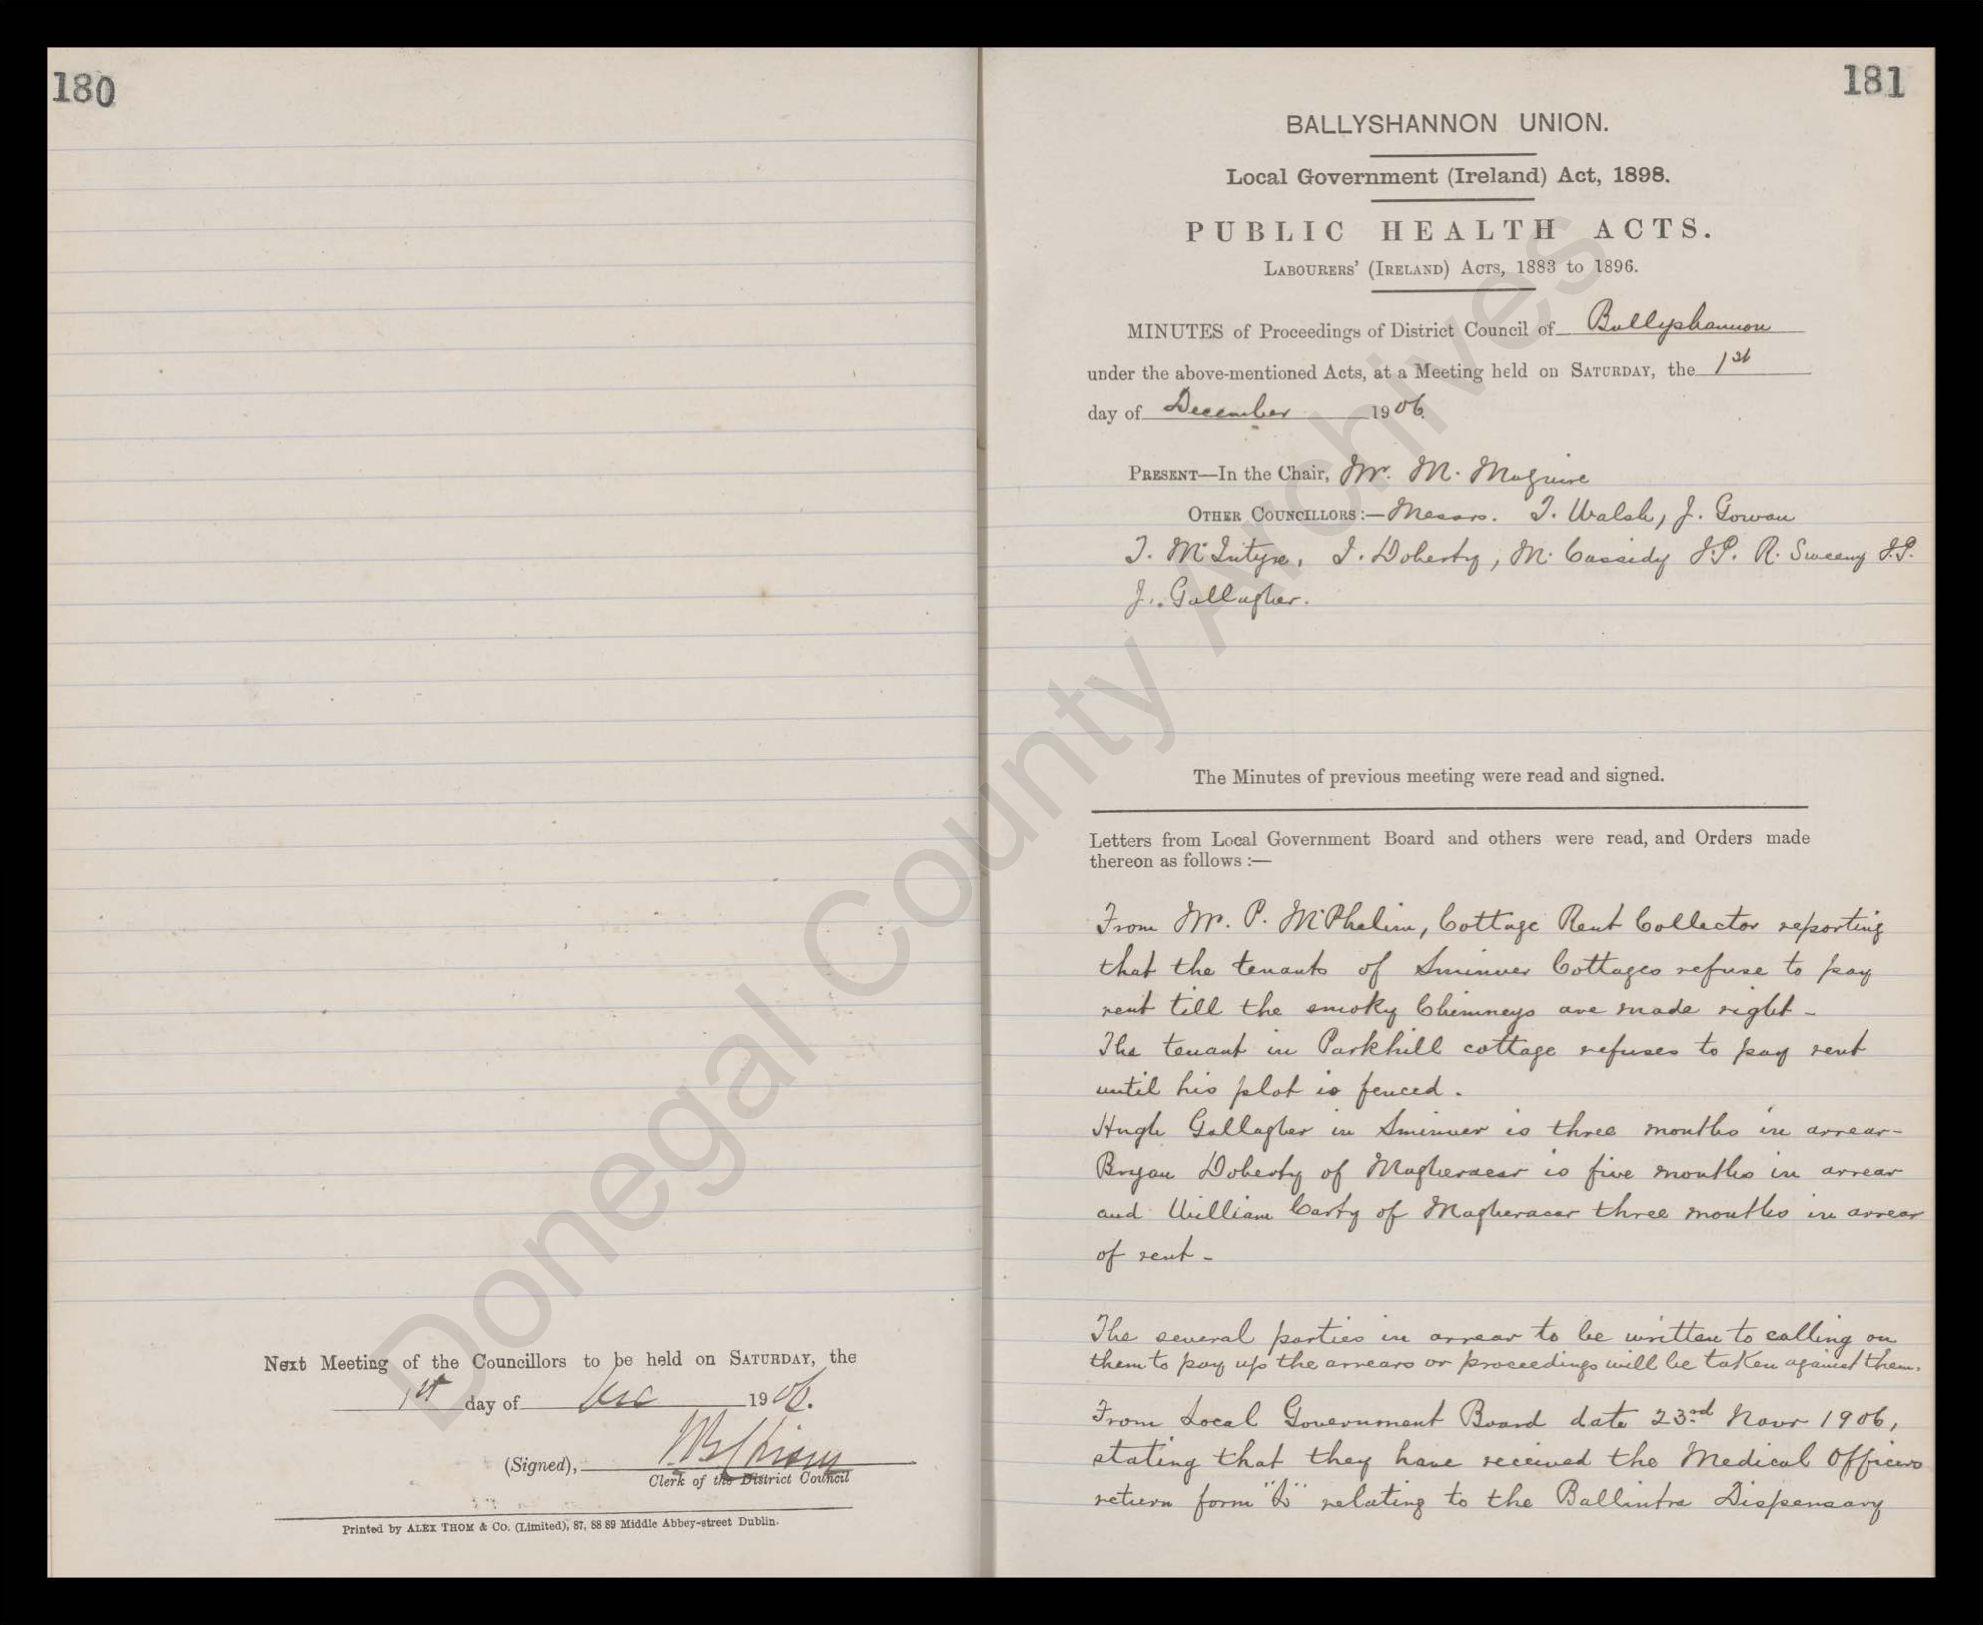 180
Next Meeting of the Councillors to be held on SATURDAY, the
1st day of Dec 1906.
(Signed),
Clerk of the District Council
Printed by ALEX THOM & CO. (Limited), 87, 88 89 Middle Abbey-street Dublin.
181
BALLYSHANNON UNION.
Local Government (Ireland) Act, 1898.
PUBLIC HEALTH ACTS.
LABOURERS' (IRELAND) ACTS, 1883 to 1896.
MINUTES of Proceedings of District Council of Ballyshannon
under the above-mentioned Acts, at a Meeting held on SATURDAY, the 1st
day of December 1906
PRESENT—In the Chair, Mr. M. Maguire
OTHER COUNCILLORS:—Messrs. T. Walsh, J. Gowan
T. McIntyre, I. Doherty, M. Cassidy J.P. R. Sweeny J.P.
J. Gallagher.
The Minutes of previous meeting were read and signed.
Letters from Local Government Board and others were read, and Orders made
thereon as follows :—
From Mr. P. McPhelim, Cottage Rent Collector reporting
that the tenants of Sminver Cottages refuse to pay
rent till the smoky Chimneys are made right -
The tenant in Parkhill cottage refuses to pay rent
until his plot is fenced.
Hugh Gallagher in Sminver is three months in arrear-
Bryan Doherty of Magheracar is five months in arrear
and William Carty of Magheracar three months in arrear
of rent -
The several parties in arrear to be written to calling on
them to pay up the arrears or proceedings will be taken against them.
From Local Government Board date 23rd Novr 1906,
stating that they have received the Medical Officers
return form relating to the Ballintra Dispensary
Donegal County Archives